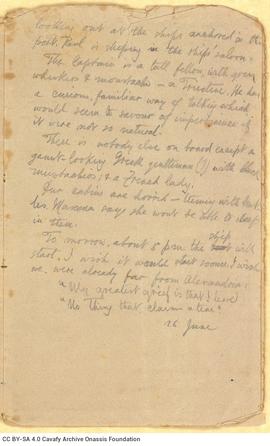 looking out at the ships anchored in the
port. Paul is sleeping in the ship's saloon.
The Captain is a tall fellow, with green
whiskers & moustache – a Triestine. He has
a curious, familiar way of talking which
would seem to savour of impertinence if
it were not so natural.
There is nobody else on board except a
gaunt-looking Greek gentleman (?) with black
moustaches; & a French lady.
Our cabins are horrid – teeming with
says she won't be able to sleep
in them.
To morrow, about 5 pm the ship will
start. I wish it would start sooner. I wish
we were already far from Alexandria:
"My greatest grief is that I leave
"No thing that claims a tear"
26 June
CC BY-SA 4.0 Cavafy Archive Onassis Foundation